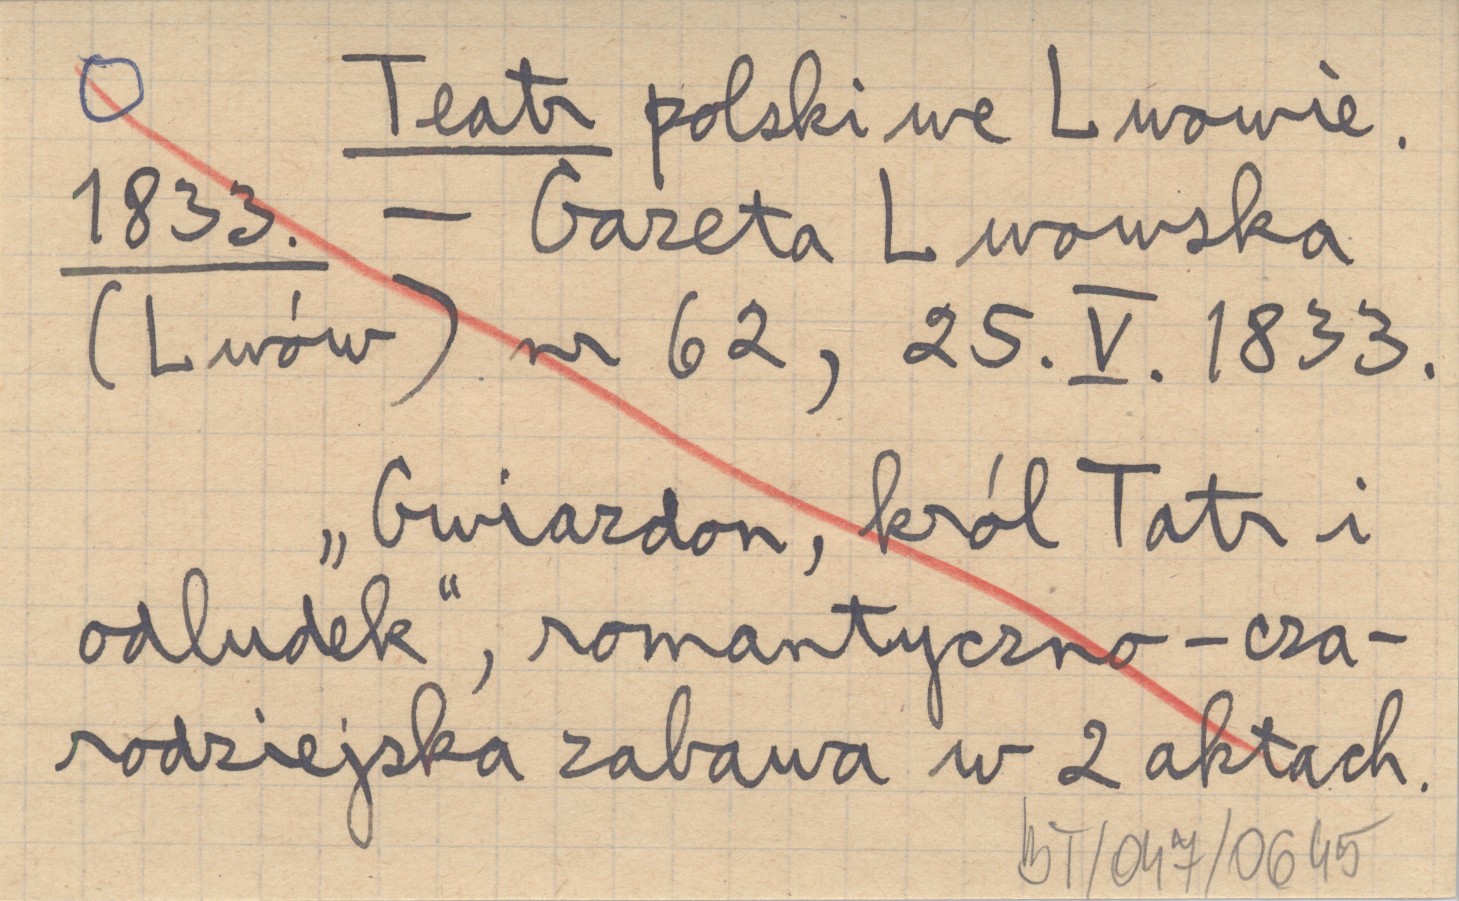 Teatr polski we Lwowie.
1833. — Gazeta Lwowska
(Lwów) nr 62, 25. V. 1833.
„Gwiazdon, król Tatr i
odludek“, romantyczno-cza-
rodziejska zabawa w 2 aktach.
BT/047/0645